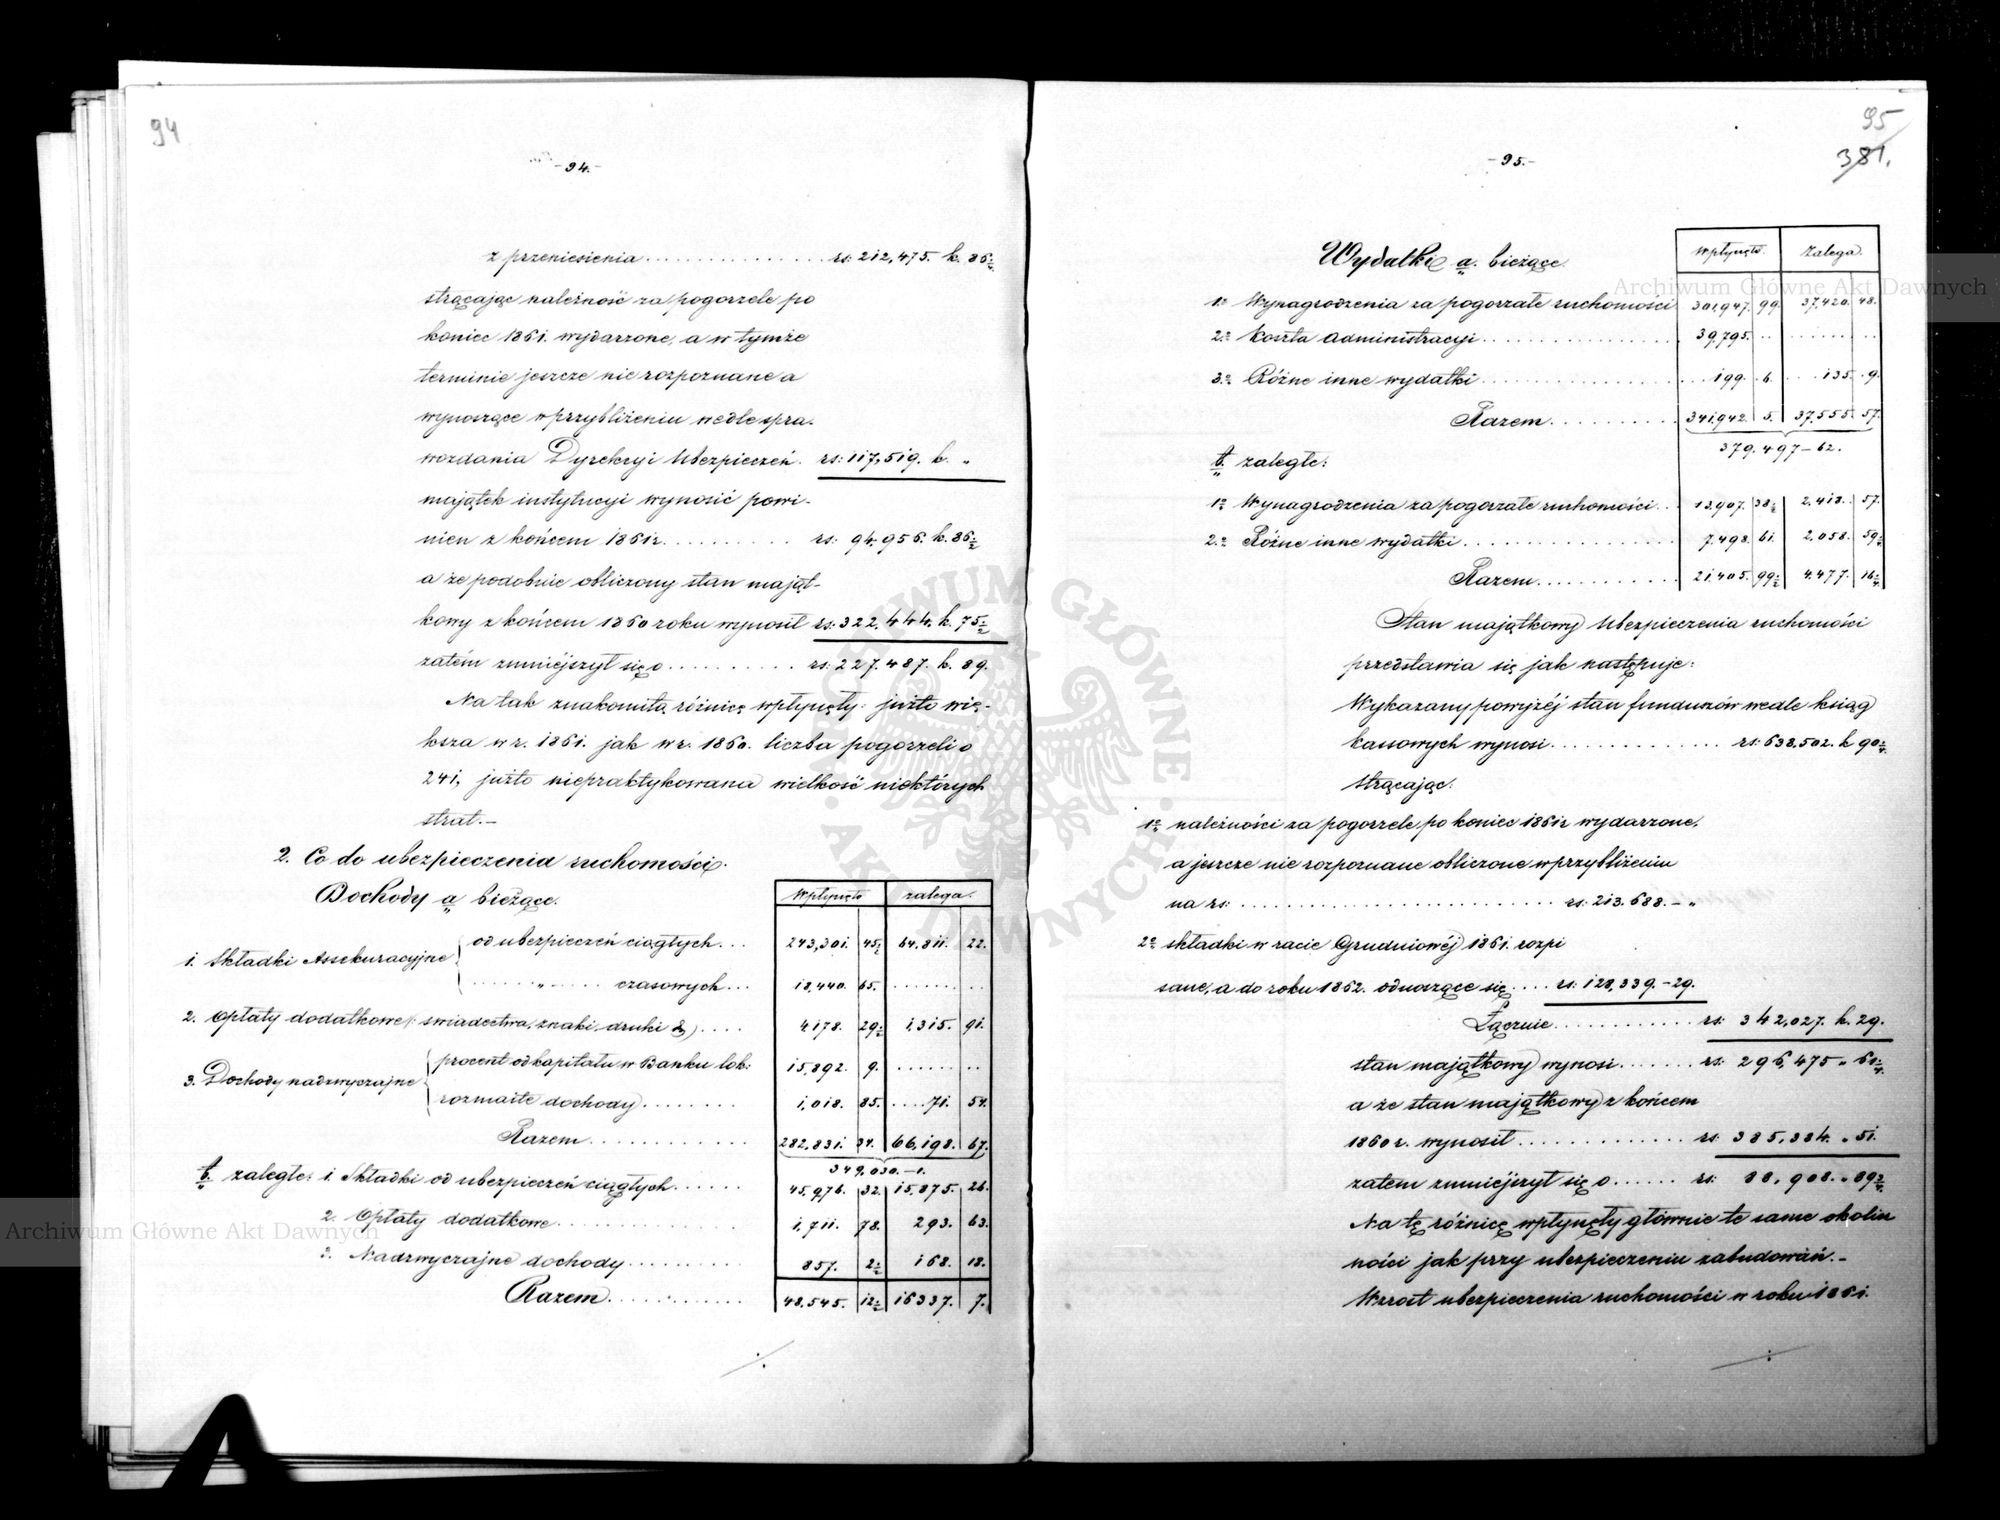 94
-94.-
z przeniesienia . . . rs: 212,475. k. 86½
strącając należność za pogorzele po
koniec 1861. wydarzone, a w tymże
terminie jeszcze nie rozpoznane a
wynoszące w przybliżeniu wedle spra-
wozdania Dyrekcyi Ubezpieczeń. rs: 117,519. k. „
majątek instytucyi wynosić powi-
nien z końcem 1861 r. . . . rs: 94.956. k. 86½
a że podobnie obliczony stan mająt-
kowy z końcem 1860 roku wynosił rs: 322.444. k. 75½
zatém zmniéjszył się o . . . rs: 227.487. k. 89.
Na tak znakomitą różnicę wpłynęły: jużto wię-
ksza w r. 1861. jak w r. 1860. liczba pogorzeli o
241, jużto niepraktykowana wielkość niektórych
strat.-
2. Co do ubezpieczenia ruchomości.
Dochody a bieżące. Wpłynęło zalega.
1. Składki Assekuracyjne od ubezpieczeń ciągłych . . . 243,301. 45½ 64.811. 22.
„ czasowych . . . 18,440. 65.
2. Opłaty dodatkowe (: świadectwa, znaki, druki &) . . . 4178. 29½ 1,315. 91.
3. Dochody nadzwyczajne procent od kapitału w Banku lok: 15,892. 9.
rozmaite dochody . . . 1,018. 85. 71. 54.
Razem . . . 282,831. 34. 66,198. 67.
349,030.-1.
b. zaległe: 1. Składki od ubezpieczeń ciągłych . . . 45,976. 32. 15,875. 26.
2. Opłaty dodatkowe . . . 1,711. 78. 293. 63.
3. Nadzwyczajne dochody . . . 857. 2½ 168. 18.
Razem . . . 48,545. 12½ 16337. 7.
95
381.
-95.-
Wydatki a. bieżące. Wpłynęło. Zalega.
1º Wynagrodzenia za pogorzałe ruchomości 301,947. 99. 37.420. 48.
2º Koszta Administracyi . . . 39,795.
3º Różne inne wydatki . . . 199. 6. 135. 9.
Razem . . . 341,942. 5. 37.555. 57.
379.497-62.
b. zaległe:
1º Wynagrodzenia za pogorzałe ruchomości . . 13,907. 38½ 2.418. 57.
2º Różne inne wydatki . . . 7.498. 61. 2.058. 59½
Razem . . . 21.405. 99½ 4.477. 16½
Stan majątkowy Ubezpieczenia ruchomości
przedstawia się jak następuje:
Wykazany powyżéj stan funduszów wedle ksiąg
kassowych wynosi . . . rs: 638.502. k 90¼
strącając:
1º należności za pogorzele po koniec 1861 r. wydarzone,
a jeszcze nie rozpoznane obliczone w przybliżeniu
na rs: . . . rs: 213.688.- „
2º składki w racie Grudniowéj 1861. rozpi
sane, a do roku 1862. odnoszące się . . . rs: 128,339.-29.
Łącznie . . . rs: 342,027. k. 29.
stan majątkowy wynosi . . . rs: 296,475 „ 61¼
a że stan majątkowy z końcem
1860 r. wynosił . . . rs: 385,384. „ 51.
zatem zmniéjszył się o . . . rs: 88,908. „ 89¾
Na tę różnicę wpłynęły głównie te same okolicz
ności jak przy ubezpieczeniu zabudowań.-
Wzrost ubezpieczenia ruchomości w roku 1861.
Archiwum Główne Akt Dawnych
Archiwum Główne Akt Dawnych
ARCHIWUM GŁÓWNE AKT DAWNYCH